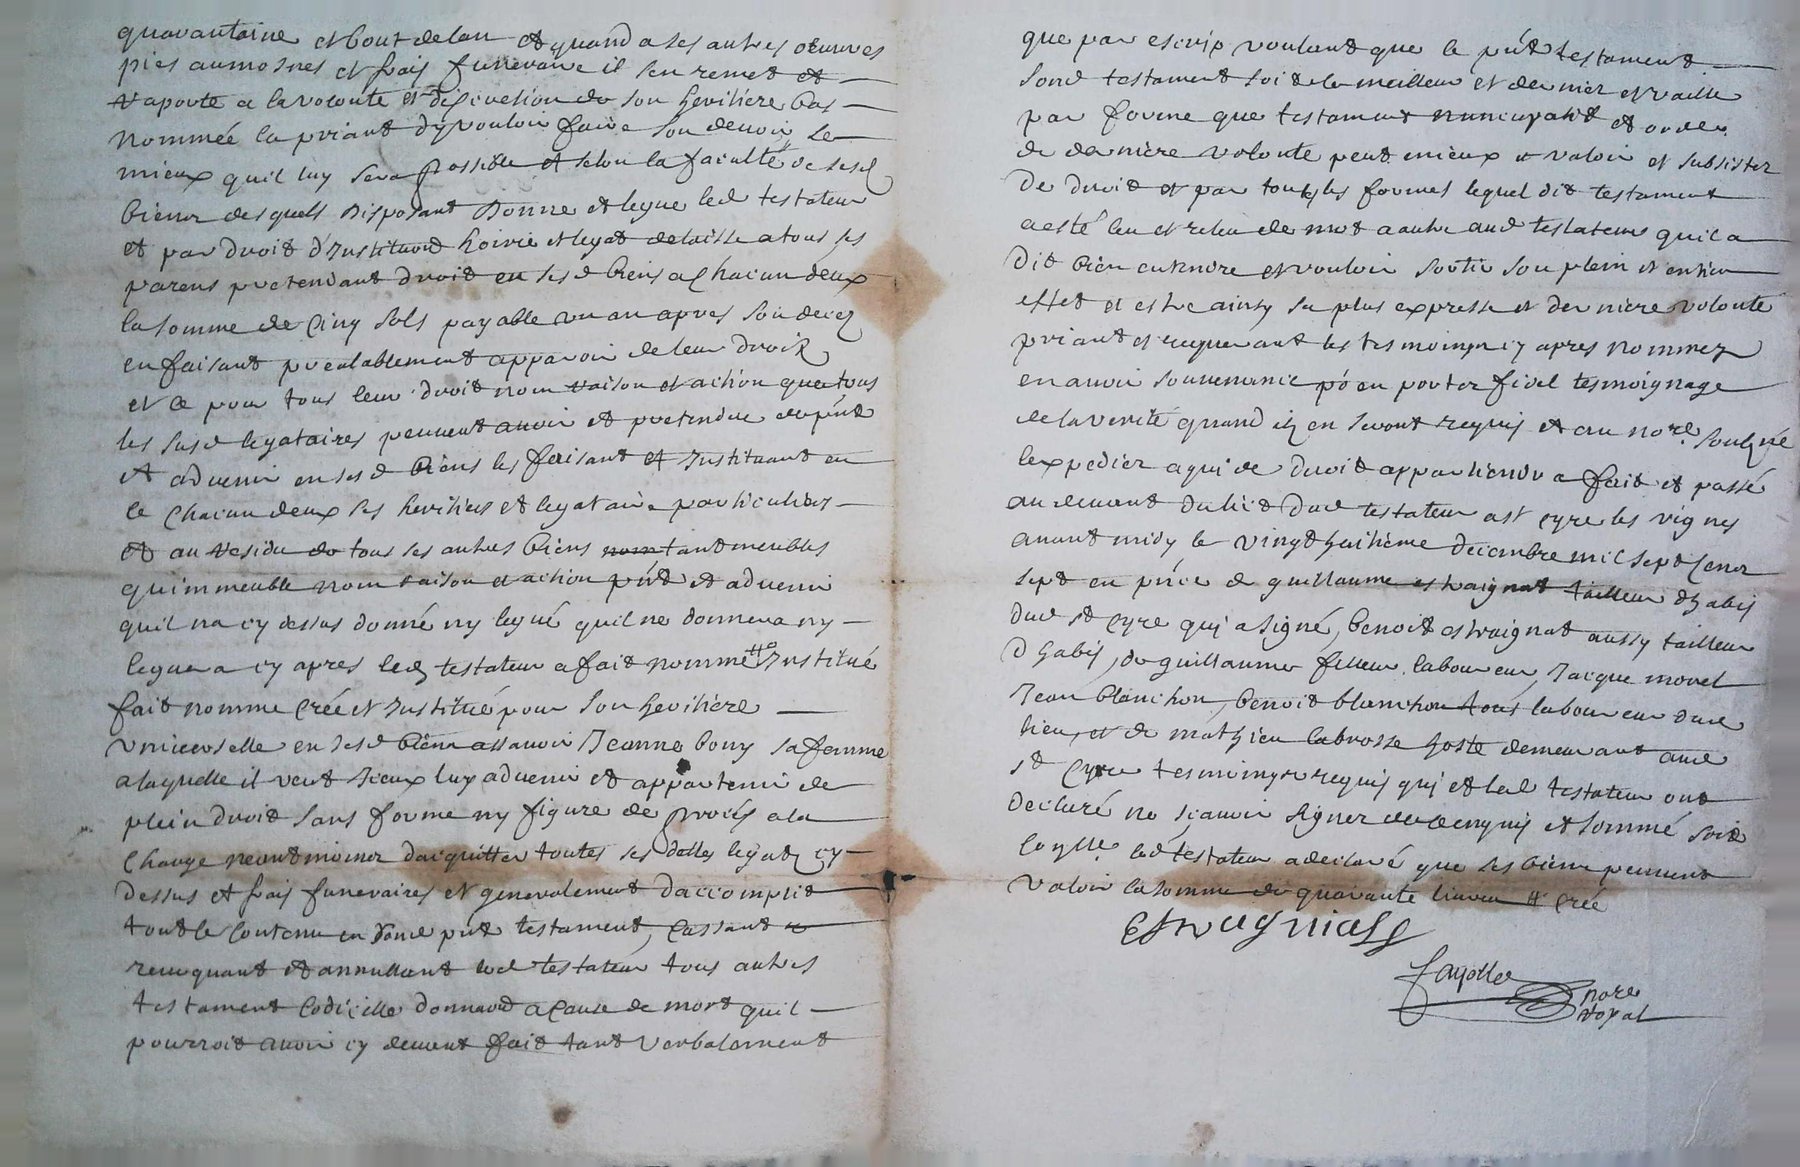 quarantaine et bout de lan et quand a ses autres oeuvres
pies aumosnes et frais funeraire il sen remet et
raporte a la volonte et discretion de son heritiere bas
nommeé la priant dy vouloir faire son devoir le
mieux quil luy sera possible et selon la faculté de sesd
biens desquels disposant donne et legue led testateur
et par droit d'Institund hoirie et legat delaisse a tous ses
parens pretendant droit en sesd biens a chacun deux
la somme de cinq sols payable un an apres son deces
en faisant prealablement apparoir de leur droit
et ce pour tous leur droit nom raison et action que tous
les susd legataires peuvent avoir et pretendre de pńt
et advenir en sesd biens les faisant et Instituant en
ce chacun deux ses heritiers et legataire particuliers
et au residu de tous ses autres biens tant meubles
quimmeuble nom raison et action pńt et advenir
quil na cy dessus donné ny legué quil ne donnera ny
leguera cy apres led testateur a fait nommé et Institué
fait nomme creé et Institué pour son heritiere
universelle en sesd biens assavoir Jeanne bony sa femme
a laquelle il veut iceux luy advenir et appartenir de
plein droit sans forme ny figure de procés a la
charge neantmoins dacquitter toutes ses dettes legats cy
dessus et frais funeraires et generalement daccomplir
tout le contenu en sond pńt testament, cassant
revoquant et annullant led testateur tous autres
testament codicille donnaond a cause de mort quil
pourroit avoir cy devant fait tant verbalement
que par escrip voulant que le pńt testament
sond testament soit le meilleur et dernier et vaille
par forme que testament nuncupatif et ordre
de derniere volonte peut mieux valoir et subsister
de droit et par toutes les formes lequel dit testament
a esté leu et releu de mot a autre aud testateur quil a
dit bien entendre et vouloir sortir son plein et entier
effet et estre ainsy sa plus expresse et derniere volonte
priant et requerant les tesmoings cy apres nommez
en avoir souvenance po en porter fidel tesmoignage
de la verité quand ilz en seront requis et au nore. soubzné
lexpedier a qui de droit appartiendra fait et passé
au devant du lict dud testateur a st cyre les vignes
avant midy le vingt huitieme decembre mil sept cens
sept en pńce de guillaume estraignat tailleur dhabis
dud st cyre qui a signé, benoit estraignat aussy tailleur
dhabis, de guillaume filleux laboureur, Jacque morel
Jean blanchon, benoit blanchon tous laboureur dud
lieu, et de mathieu labrosse hoste demeurant aud
st cyre tesmoings requis qui et led testateur ont
declaré ne sçavoir signer de ce enquis et sommé soit
led testateur a declaré que ses biens peuvent
valoir la somme de quarante livres
Estragniats
fayolle
nore
royal